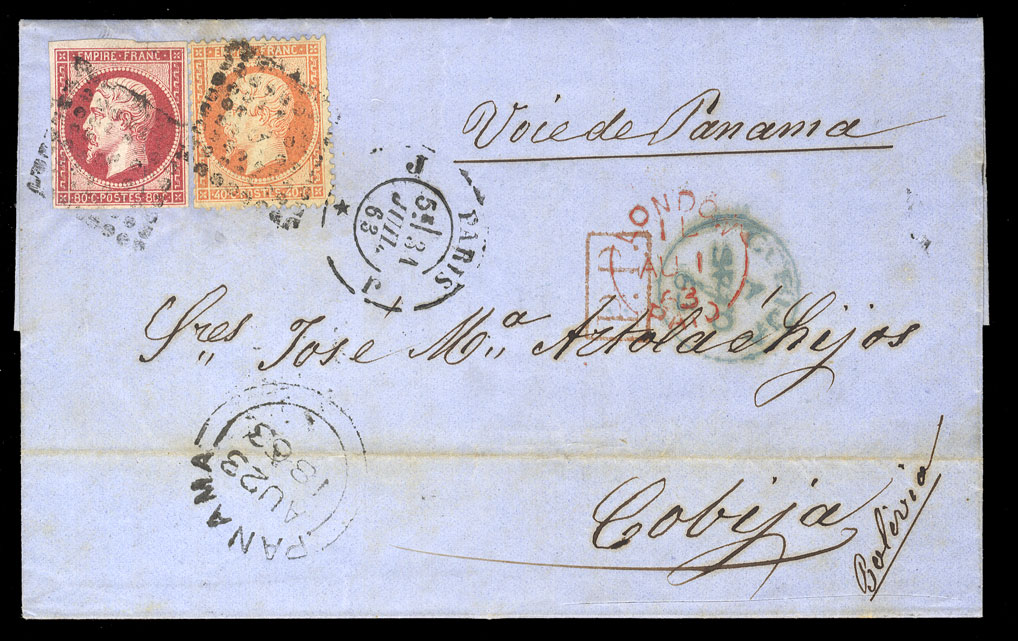 EMPIRE·FRANC·
80·C·POSTES·80
EMPIRE FRANC
40 POSTES
Voie de Panama
PARIS
J
5E 31
JUIL.
63
J
LONDON
AU 1
63
PAID
P.D.
Sres José Ma Artola é hijos
PANAMA
AU 23
1863
Cobija
Bolivia